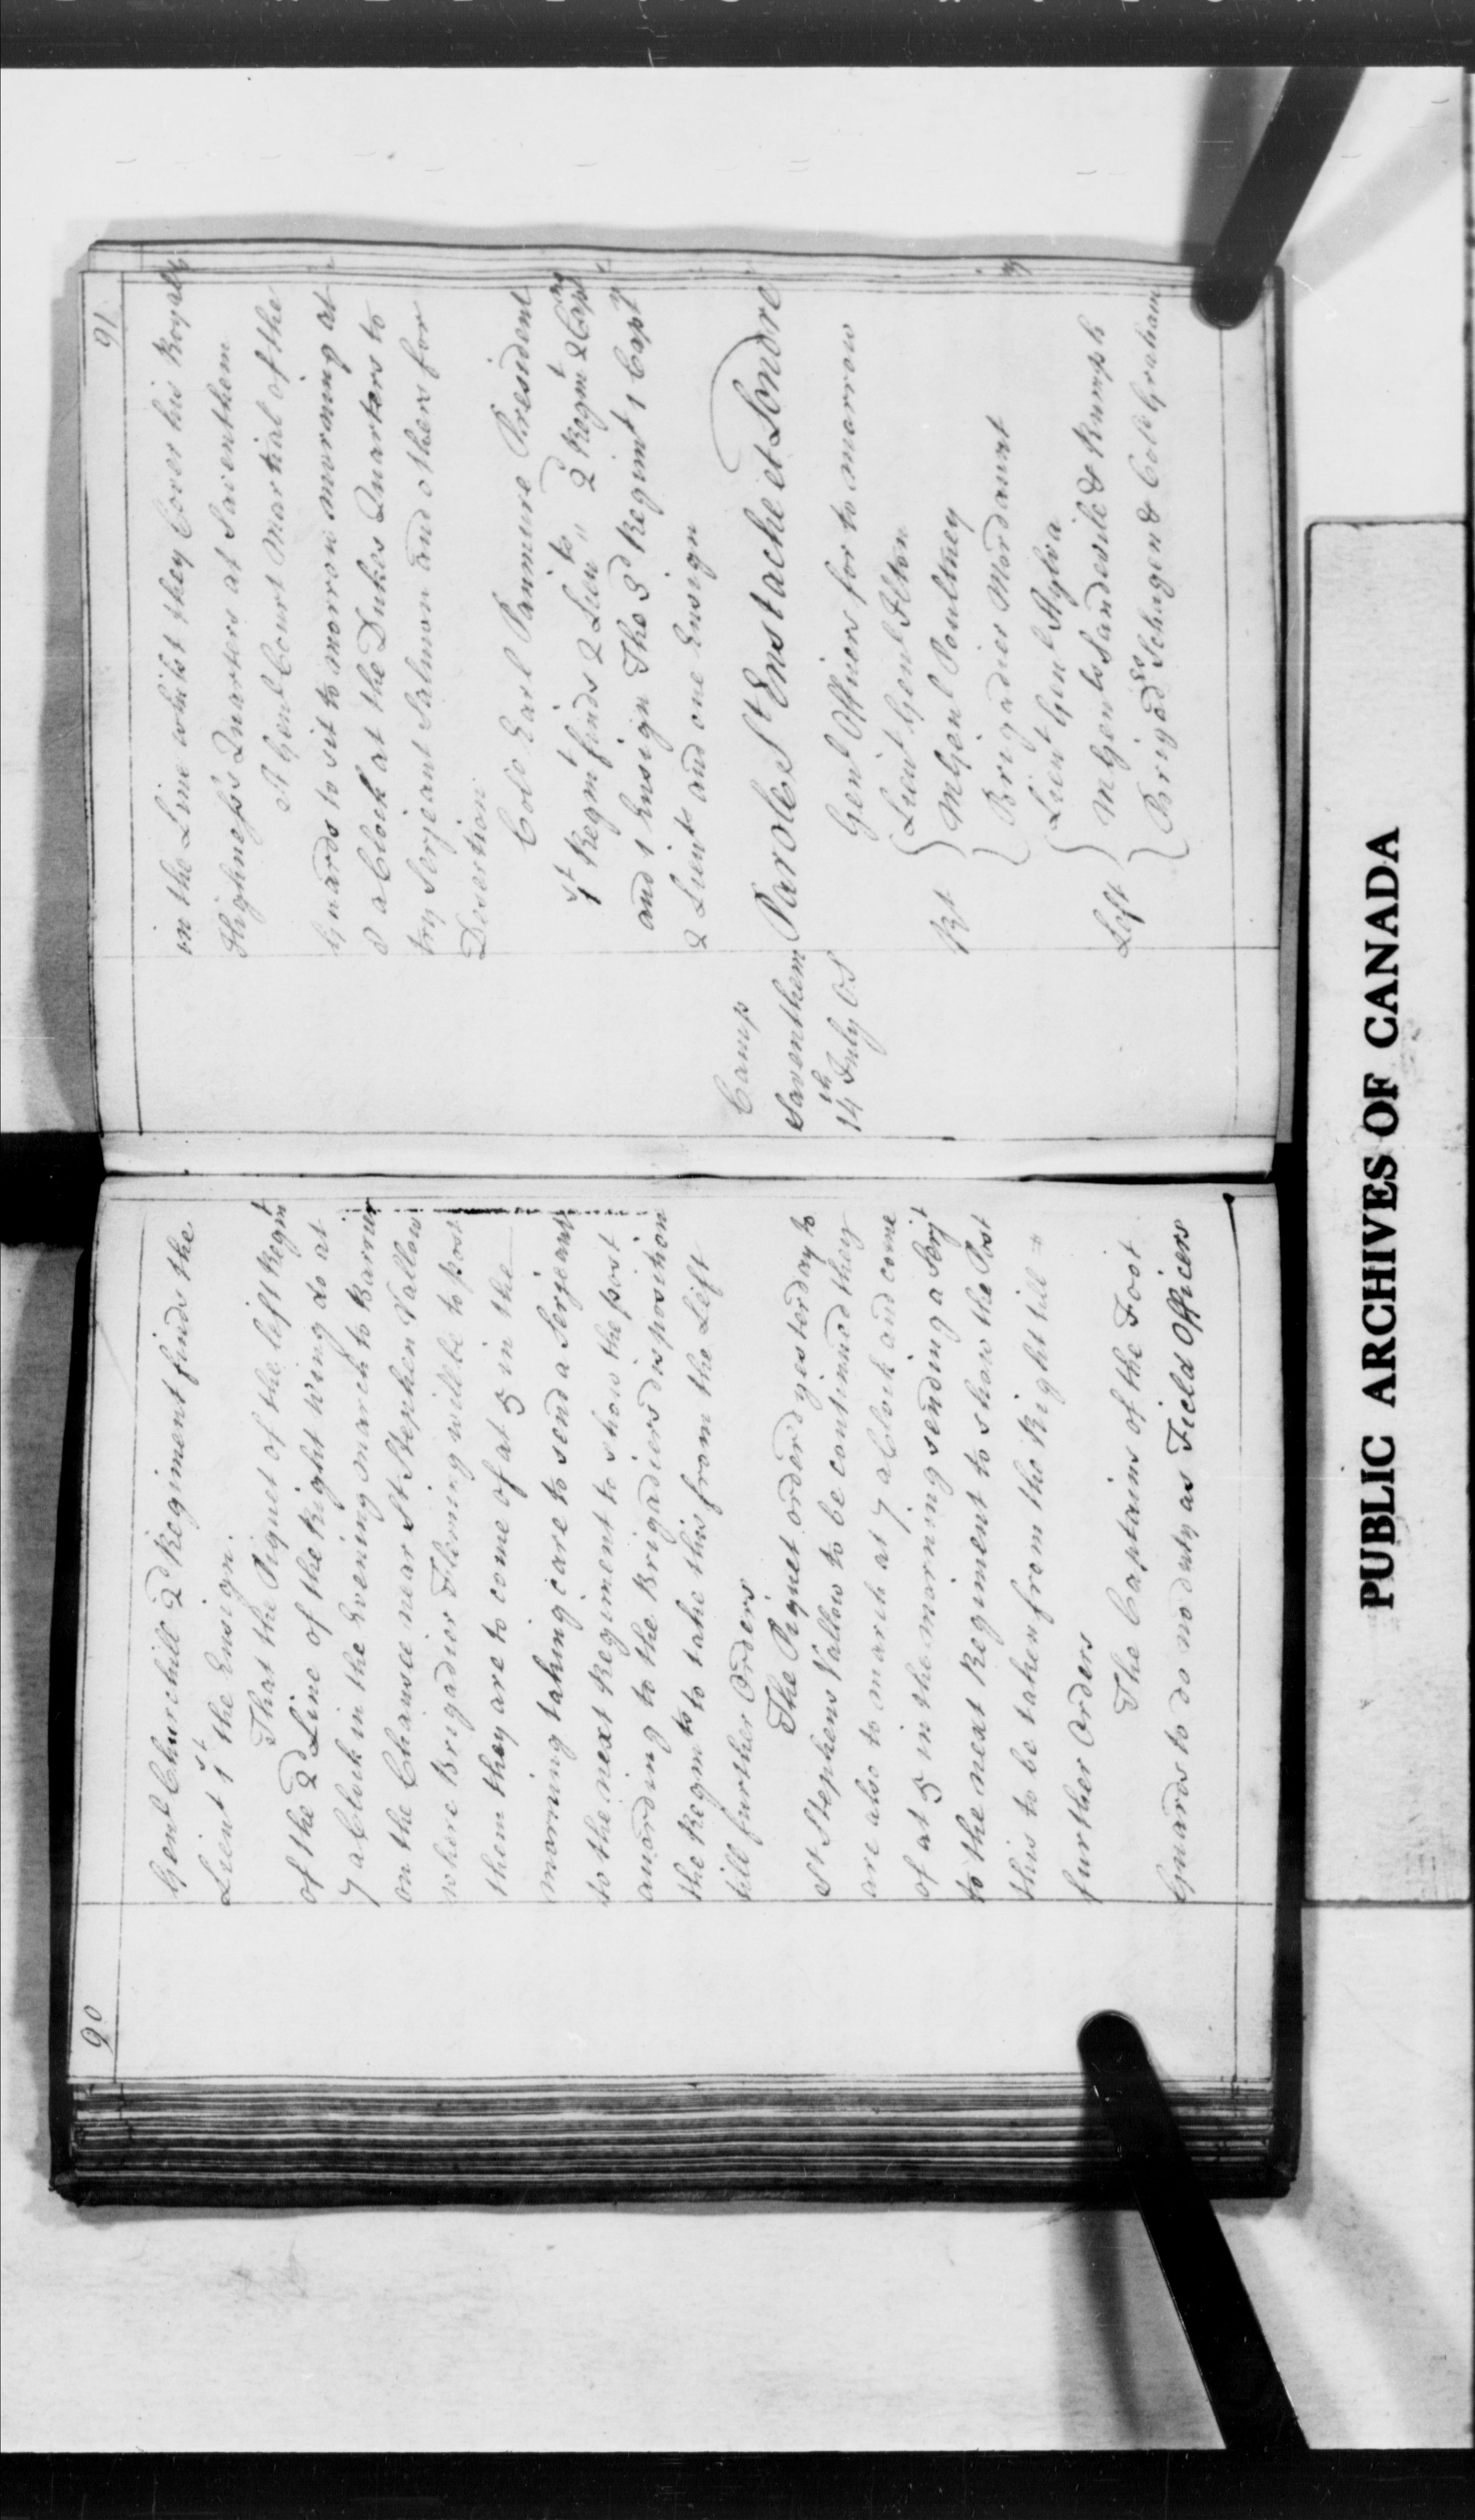 90
Genl Churchill 2d Regiment finds the
Lieut 1st the Ensign.
That the Piquet of the left Regmt
of the 2d Line of the Right Wing do at
7 a Clock in the Evening march to Barrier
on the Chausee near St Stephen Vallow
where Brigadier Fleming will be to post
them they are to come of at 5 in the
morning taking care to send a Serjeant
to the next Regiment to show the post
auording to the Brigadiers disposition
the Regmts to take this from the Left
till further Orders
The Piquet orderd yesterday to
St Stephens Vallow to be continued they
are also to march at 7 a Clock and come
of at 5 in the morning sending a Serjt
to the next Regiment to show the Post
this to be taken from the Right till
further Orders
The Captains of the Foot
Guards to do no duty as Field Officers
91
in the Line whilst they Cover his Royall
Highness's Quarters at Saventhem
A Genl Court Martial of the
Guards to sit to morrow morning at
8 a Clock at the Dukes Quarters to
try Serjeant Salmon and others for
Desertion
Colo Earl Panmure President
1st Regmt finds 2 Lieuts " 2d Regmt 2 Captns
and 1 Ensign The 3d Regimt 1 Capt
2 Lieuts and one Ensign
Camp
Saventhem
14th July OS
Parole St Enstache et Londre
Genl Officers for to morrow
Rt
Lieut Genl Ilton
M Genl Poultney
Brigadier Mordaunt
Left
Lieut Genl Aylva
M Genls Sandevile & Rumph
Brigadrs Schagen & Colo Graham
PUBLIC ARCHIVES OF CANADA